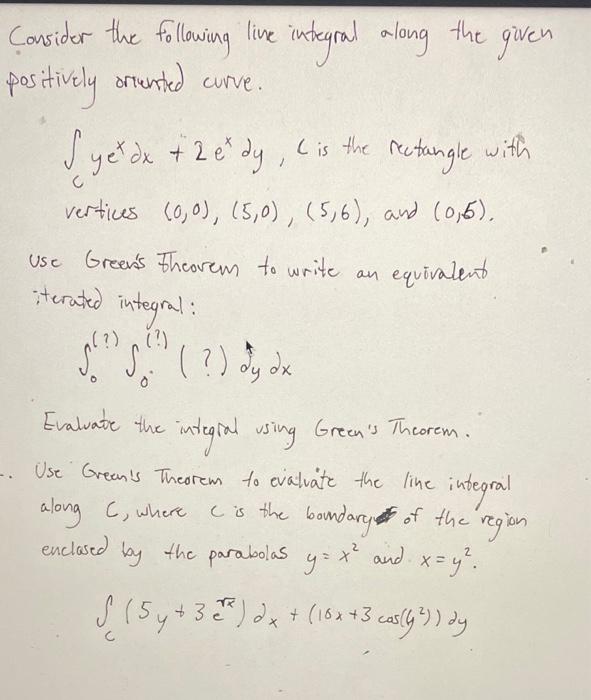 Consider the following line integral along the given
positively oriented curve.
∫_C ye^x dx + 2e^x dy, C is the rectangle with
vertices (0,0), (5,0), (5,6), and (0,6).
Use Green's Theorem to write an equivalent
iterated integral:
∫_0^(?) ∫_0^(?) (?) dy dx
Evaluate the integral using Green's Theorem.
-. Use Green's Theorem to evaluate the line integral
along C, where C is the boundary of the region
enclosed by the parabolas y = x^2 and x = y^2.
∫_C (5y + 3e^√x) dx + (16x + 3 cos(y^2)) dy